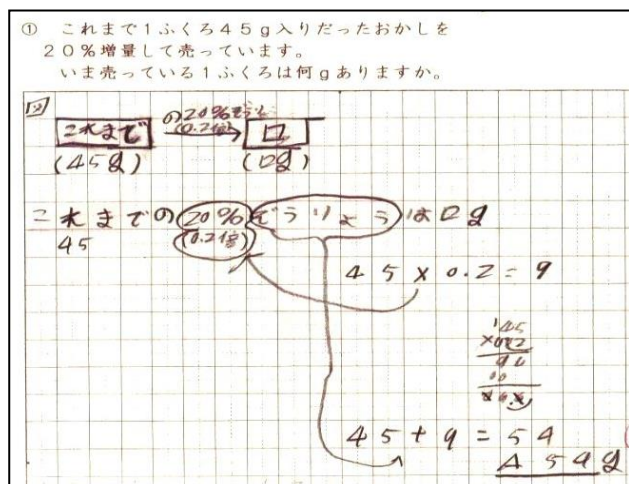 ① これまで1ふくろ45g入りだったおかしを
20%増量して売っています。
いま売っている1ふくろは何gありますか。
図
の20%ぞうりょう
これまで (0.2倍) □
(45g) (□g)
これまでの20%ぞうりょうは□g
45 (0.2倍)
45×0.2=9
45
×0.2
90
00
45+9=54
A 54g